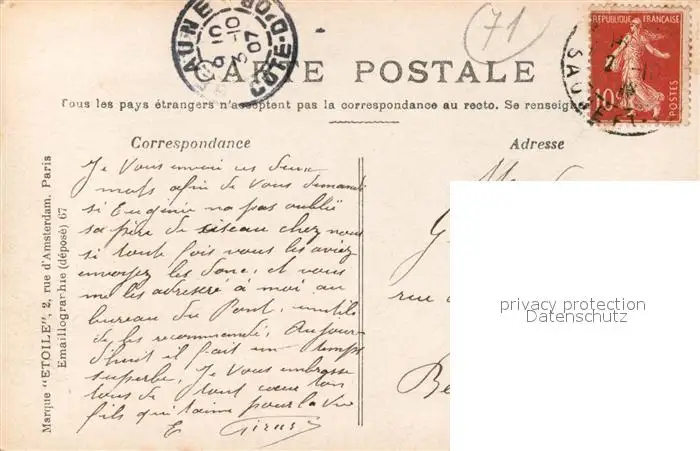 BEAUNE CÔTE-D'OR
9 10
3-10
07
71
REPUBLIQUE FRANÇAISE
10
POSTES
SAONE ET
CARTE POSTALE
Tous les pays étrangers n'acceptent pas la correspondance au recto. Se renseign
Correspondance
Je vous envoi ces deux
mots afin de vous demandé
si Eugénie na pas oublié
sa père de siseau chez nous
si toute fois vous les aviez
envoyez les donc, et vous
me les adresiré à moi au
bureau du Pont, inutile
de les recommandé. Aujour-
d'huit il fait un temps
superbe. Je Vous embrasse
tous de tout cœur ton
fils qui t'aime pour la vie
E
Adresse
G
rue
Be
Marque "ETOILE", 2, rue d'Amsterdam, Paris
Emaillographie (déposé) 67
privacy protection
Datenschutz